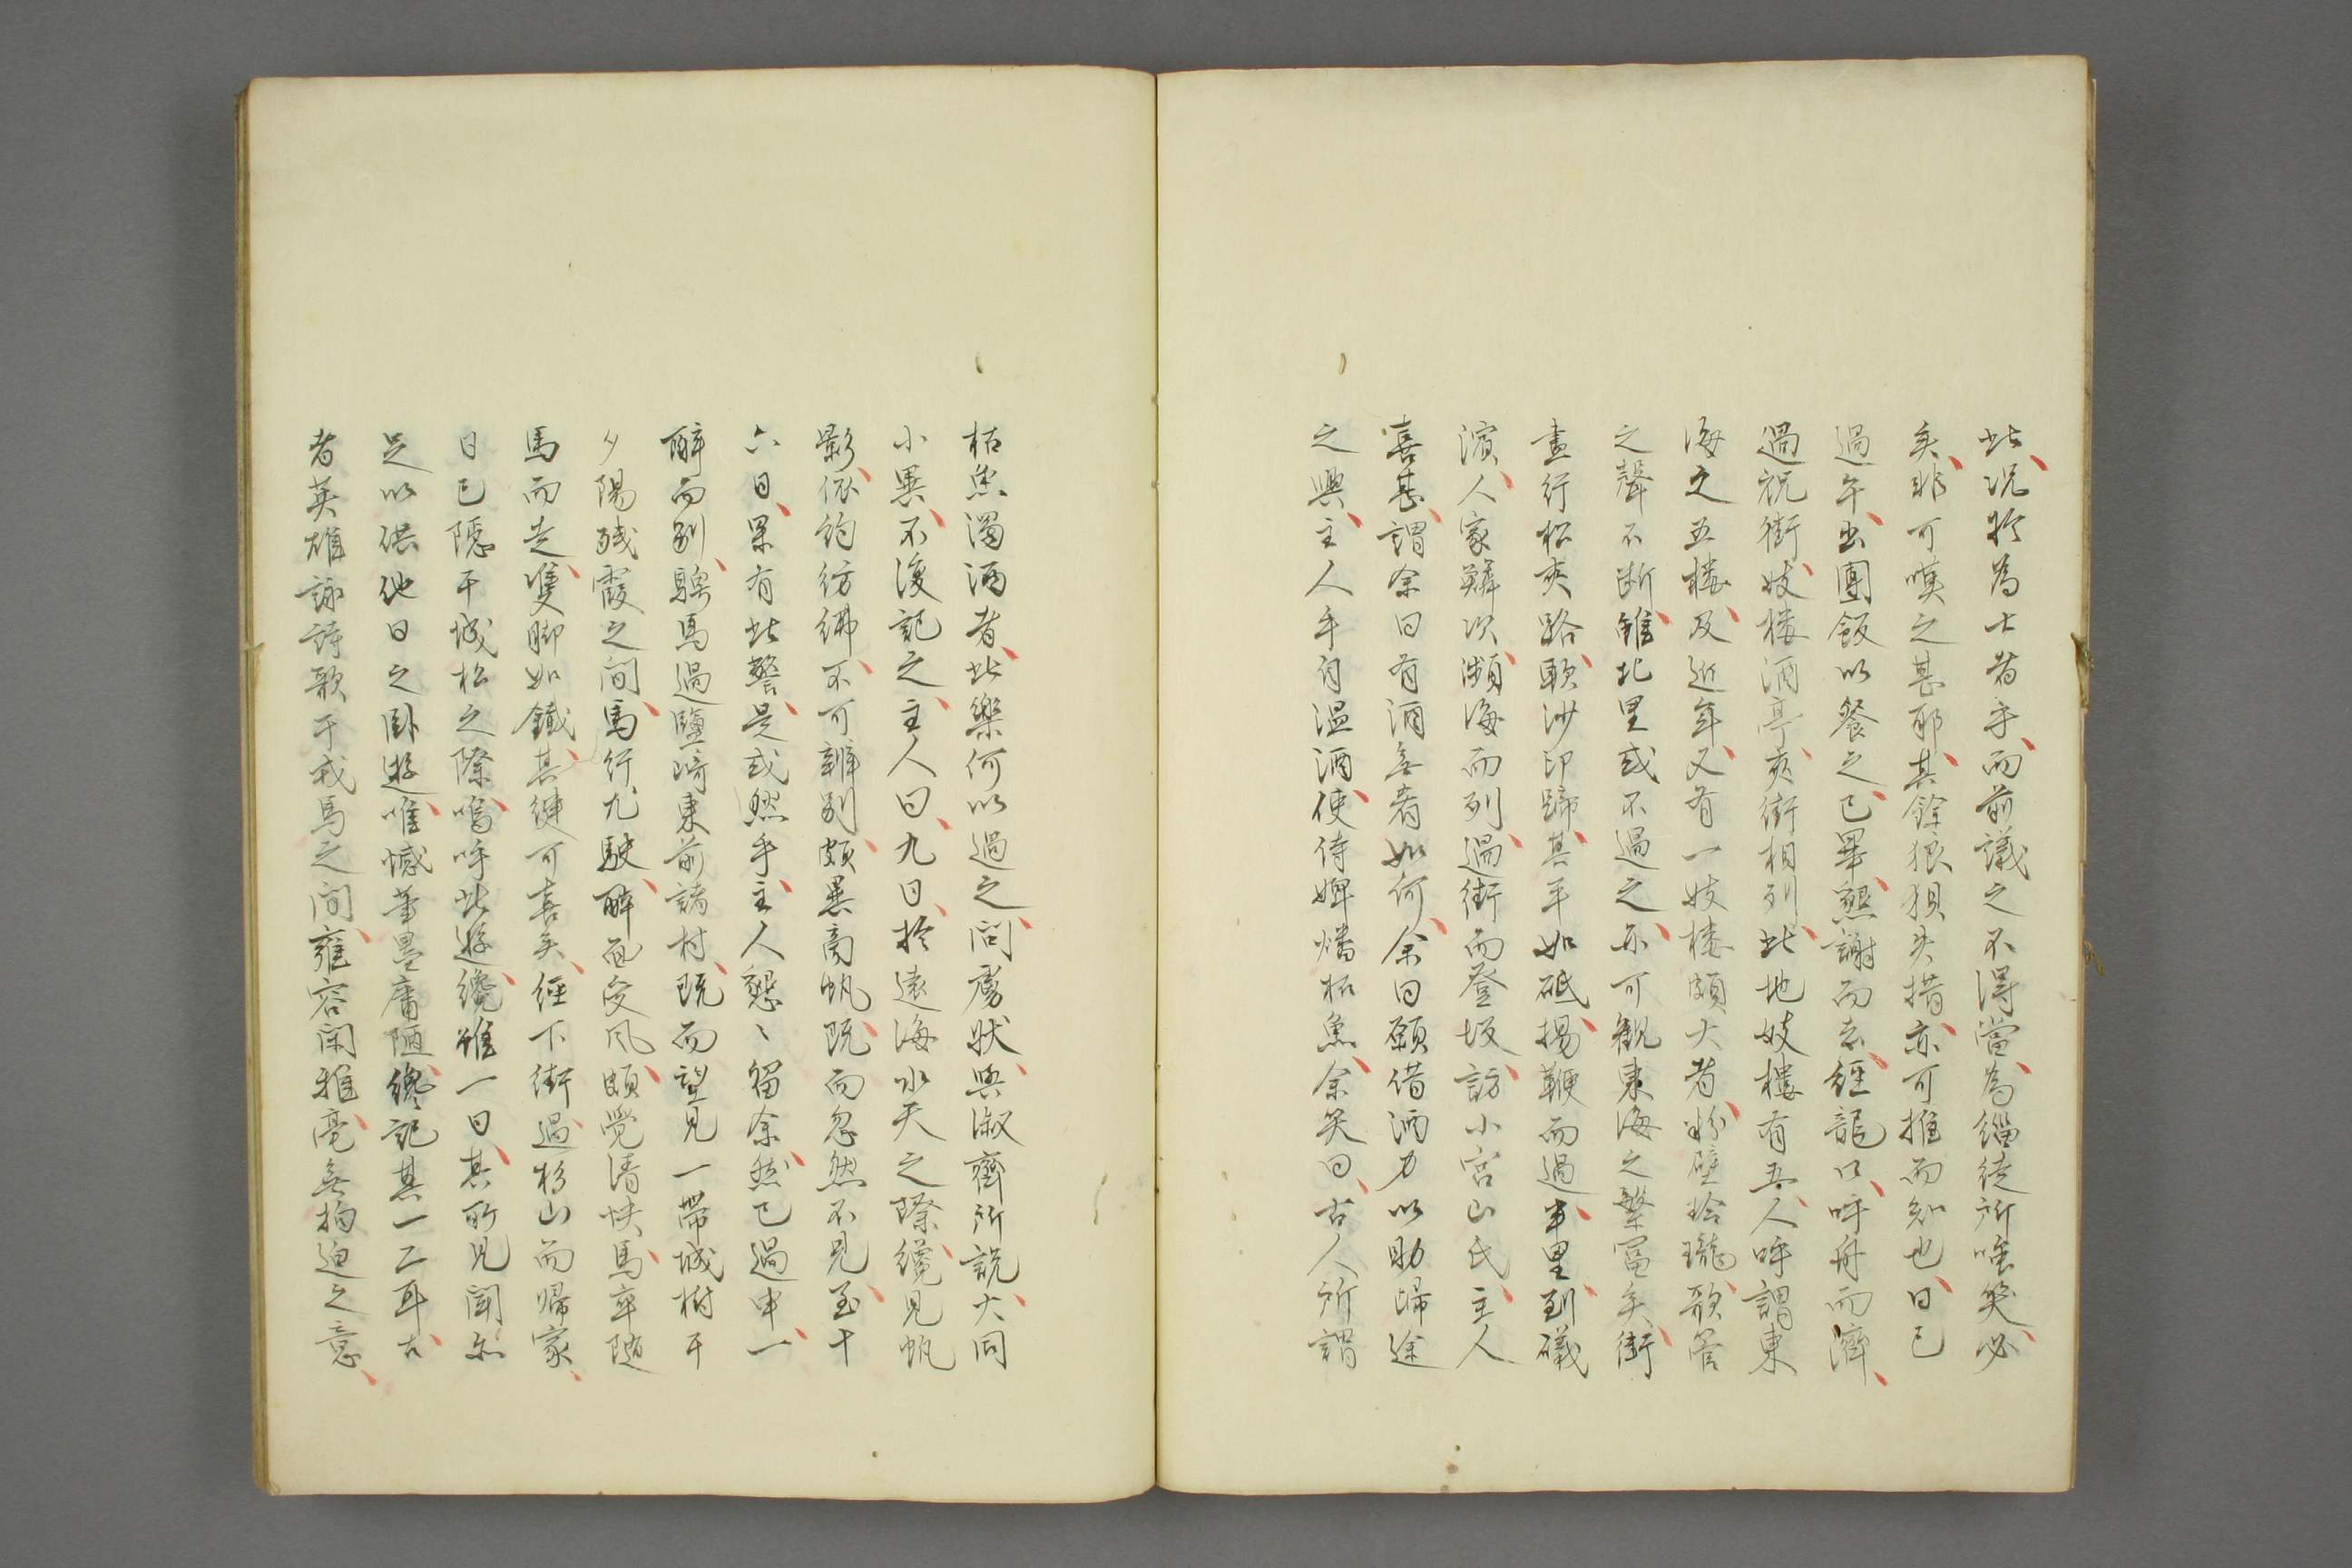 此、況於為士者乎、而前議之不得當、為緇徒所嗤笑、必
矣、非可嘆之甚耶、其餘狼狽失措、亦可推而知也、日已
過午、出團飯以餐之、已畢、懇謝而去、經龍口、呼舟而濟、
過祝街、妓楼酒亭、夾街相列、此地妓樓有五、人呼謂東
海之五楼、及近年、又有一妓楼頗大者、粉壁玲瓏、歌管
之聲不断、雖北里或不過之、亦可観東海之繁富矣、街
盡行松夾路、軟沙印蹄、其平如砥、揚鞭而過、半里、到礒
濱、人家鱗次、瀕海而列、過街而登坂、訪小宮山氏、主人
喜甚、謂余曰有酒無肴如何、余曰願借酒力以助帰途
之興、主人手自温酒、使侍婢燔枯魚、余笑曰、古人所謂
枯魚濁酒者、此樂何以過之、問虜状、與淑齊所説、大同
小異、不復記之、主人曰、九日、於遠海水天之際、纔見帆
影、依約彷彿、不可辨別、頗異商帆、既而忽然不見、至十
六日、果有此警、是或然乎、主人懇〻留余、然已過申、一
酔而別、騁馬過鹽﨑東前諸村、既而望見一帶城樹于
夕陽残霞之間、馬行尤駛、酔面受風、頗覺清快、馬卒随
馬而走、雙脚如鐵、其健可喜矣、經下街、過杉山而帰家、
日已隠于城松之際、嗚呼此遊纔雖一日、其所見聞亦
足以供他日之臥遊、唯憾筆墨庸陋、纔記其一二耳、古
者英雄詠詩歌于戎馬之間、雍容閑雅、毫無拘迫之意、